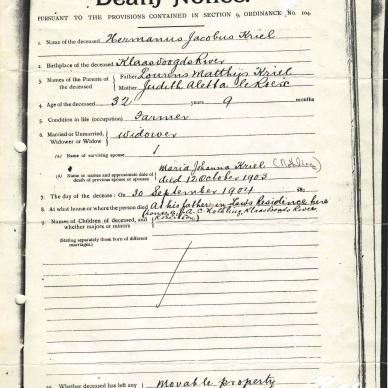 Death Notice.
PURSUANT TO THE PROVISIONS CONTAINED IN SECTION 9, ORDINANCE No. 104
1. Name of the deceased Hermanus Jacobus Kriel
2. Birthplace of the deceased Klaasvoogds River
3. Names of the Parents of the deceased Father Lourens Matthijs Kriel
Mother Judith Aletta le Roux
4. Age of the deceased 32 years 9 months
5. Condition in life (occupation) Farmer
6. Married or Unmarried, Widower or Widow Widower
(a) Name of surviving spouse
(b) Name or names and approximate date of death of previous spouse or spouses Maria Johanna Kriel
died 12 October 1903
7. The day of the decease: On 30 September 1904
8. At what house or where the person died At his father in Laws Residence here
Klaasvoogds River
9. Names of Children of deceased, and whether majors or minors
(Stating separately those born of different marriages).
10. Whether deceased has left any Movable property